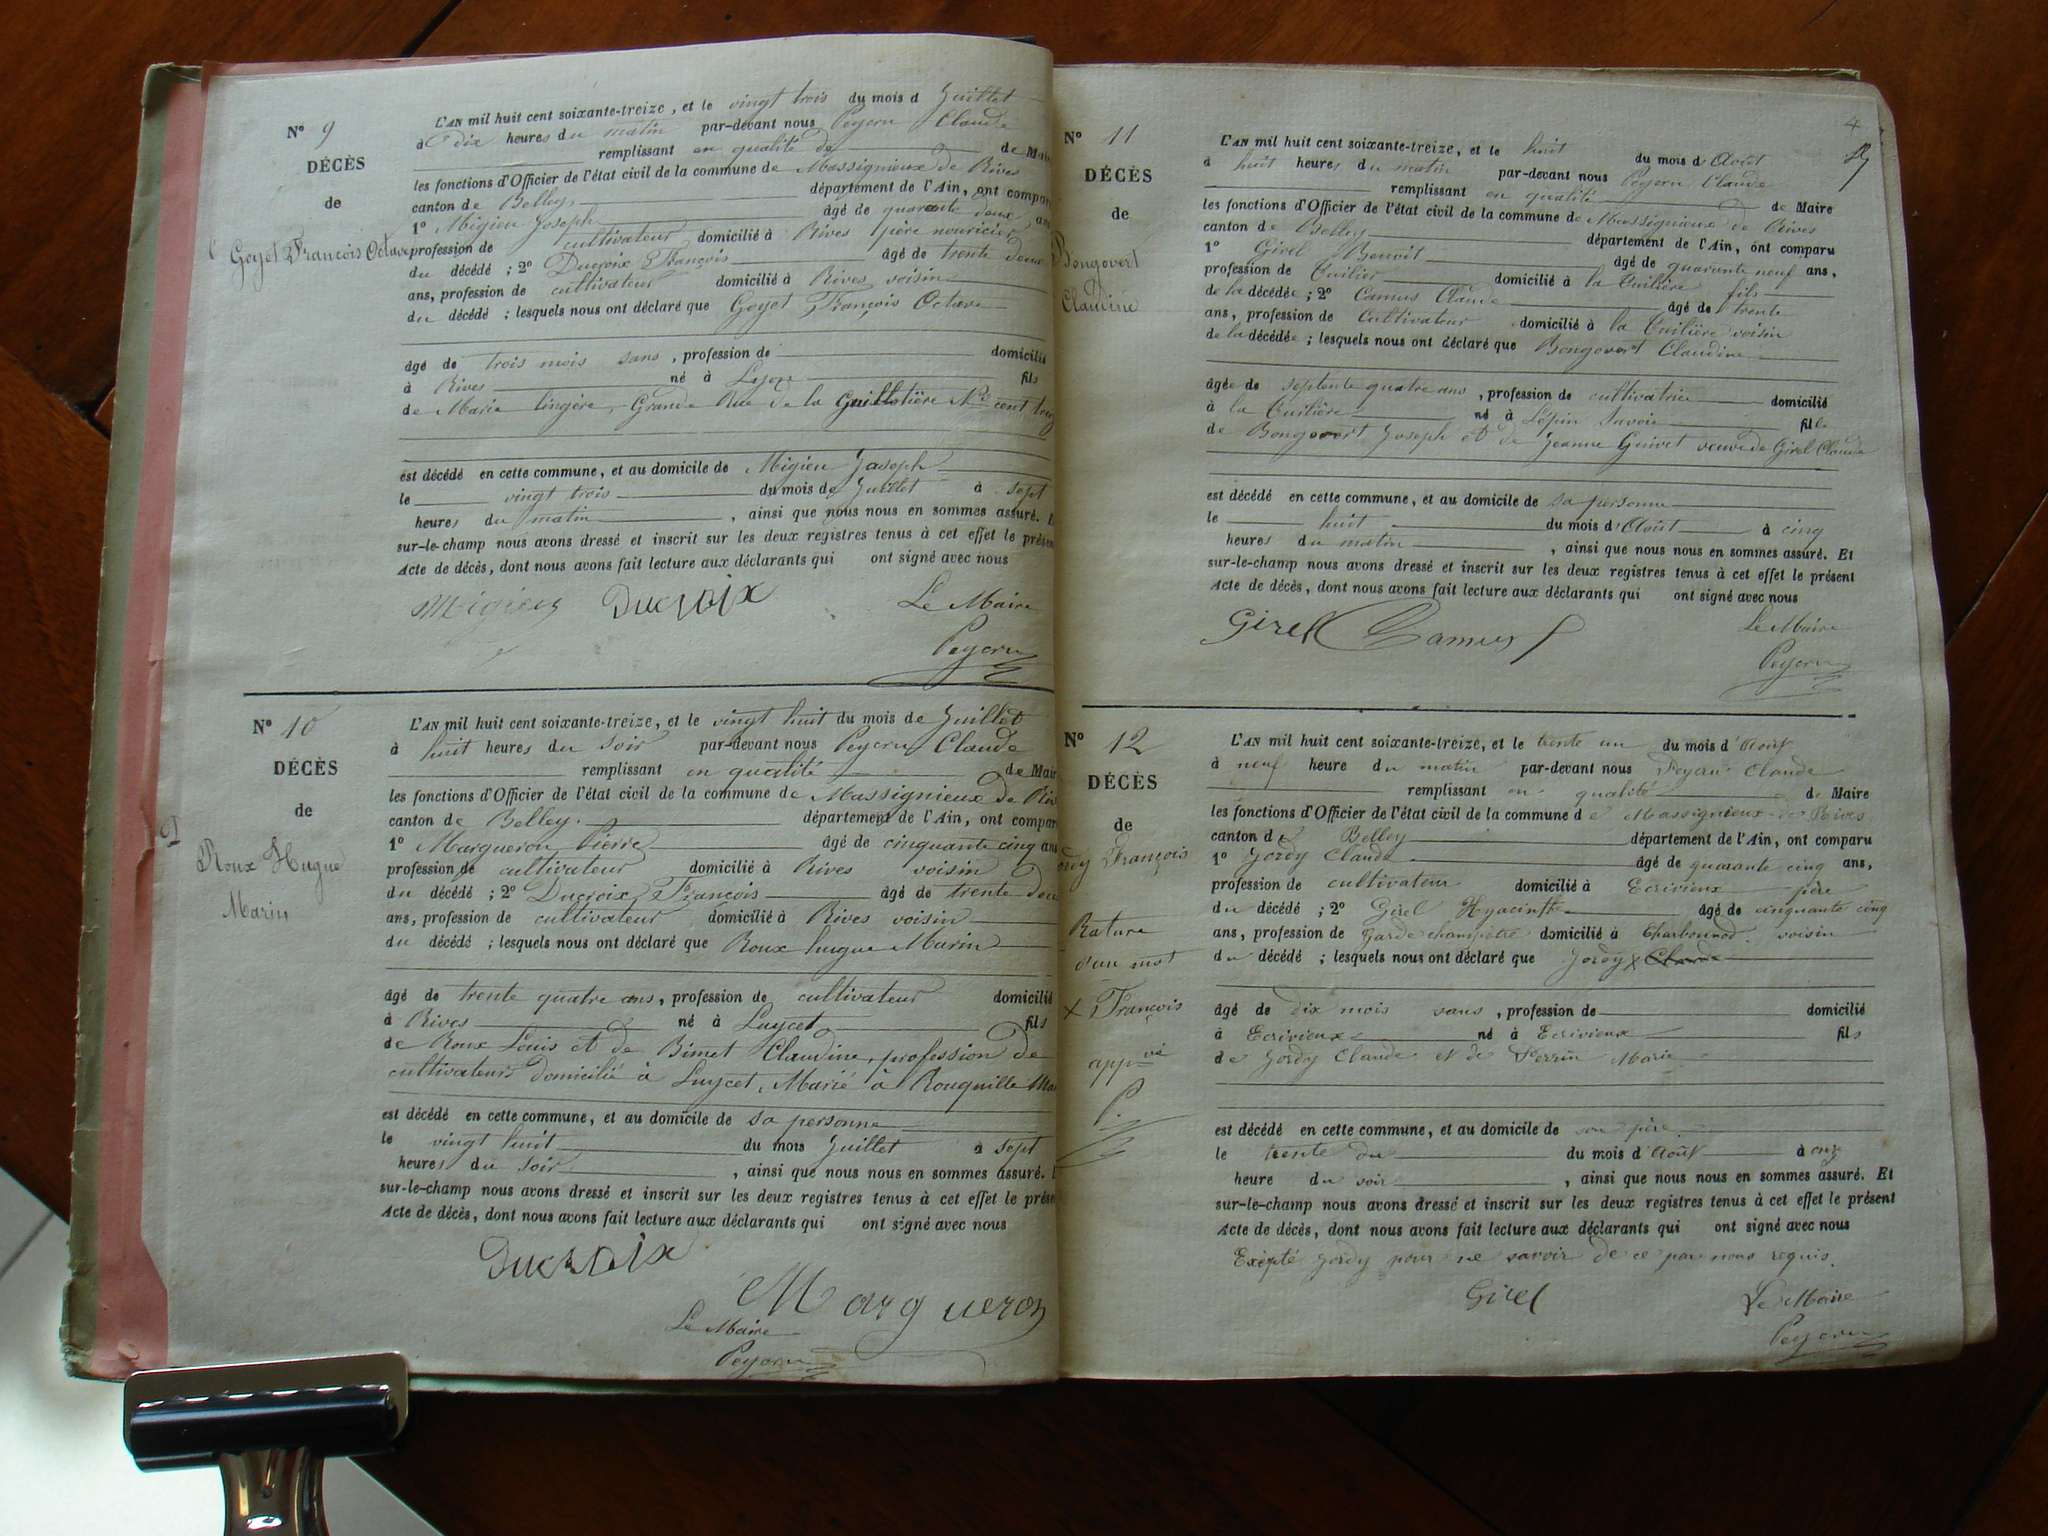 Nº 9
DÉCÈS
de
Goyet François Octave
L'AN mil huit cent soixante-treize, et le vingt trois du mois d Juillet
à dix heures du matin par-devant nous Peyern Claude
remplissant en qualité de de Maire
les fonctions d'Officier de l'état civil de la commune de Massignieux de Rives
canton de Belley département de l'Ain, ont compar
1º Migieu Joseph âgé de quarante deux ans
profession de cultivateur domicilié à Rives père nouricier
du décédé ; 2º Ducroix François âgé de trente deux
ans, profession de cultivateur domicilié à Rives voisin
du décédé ; lesquels nous ont déclaré que Goyet François Octave
âgé de trois mois sans , profession de domicilié
à Rives né à Lyon fils
de Marie lingère, Grande Rue de la Guillotière Nº cent
est décédé en cette commune, et au domicile de Migieu Joseph
le vingt trois du mois de Juillet à sept
heures du matin , ainsi que nous nous en sommes assuré. E
sur-le-champ nous avons dressé et inscrit sur les deux registres tenus à cet effet le présen
Acte de décès, dont nous avons fait lecture aux déclarants qui ont signé avec nous
Migieu Ducroix Le Maire
Peyern
Nº 10
DÉCÈS
de
Roux Hugue
Marin
L'AN mil huit cent soixante-treize, et le vingt huit du mois de Juillet
à huit heures du soir par-devant nous Peyern Claude
remplissant en qualité de Mair
les fonctions d'Officier de l'état civil de la commune de Massignieux de Riv
canton de Belley. département de l'Ain, ont compar
1º Margueron Pierre âgé de cinquante cinq ans
profession de cultivateur domicilié à Rives voisin
du décédé ; 2º Ducroix François âgé de trente deux
ans, profession de cultivateur domicilié à Rives voisin
du décédé ; lesquels nous ont déclaré que Roux hugue Marin
âgé de trente quatre ans, profession de cultivateur domicilié
à Rives né à Luycet fils
de Roux Louis et de Bimet Claudine, profession de
cultivateurs domicilié à Luycet, Marié à Rouquille
est décédé en cette commune, et au domicile de sa personne
le vingt huit du mois Juillet à sept
heures du soir , ainsi que nous nous en sommes assuré. E
sur-le-champ nous avons dressé et inscrit sur les deux registres tenus à cet effet le prése
Acte de décès, dont nous avons fait lecture aux déclarants qui ont signé avec nous
Ducroix
Margueron
Le Maire
Peyern
4
Nº 11
DÉCÈS
de
Bongovert
Claudine
L'AN mil huit cent soixante-treize, et le huit du mois d'Août
à huit heures du matin par-devant nous Peyern Claude
remplissant en qualité de Maire
les fonctions d'Officier de l'état civil de la commune de Massignieux de Rives
canton de Belley département de l'Ain, ont comparu
1º Girel Benoit âgé de quarante neuf ans,
profession de Tuilier domicilié à la Tuilière fils
de la décédée ; 2º Camus Claude âgé de trente
ans, profession de Cultivateur domicilié à la Tuilière voisin
de la décédée ; lesquels nous ont déclaré que Bongovert Claudine
âgée de septente quatre ans , profession de cultivatrice domicilié
à la Tuilière né à Lépin Savoie fille
de Bongovert Joseph et de Jeanne Guivet veuve de Girel Claude
est décédé en cette commune, et au domicile de sa personne
le huit du mois d'Août à cinq
heures du matin , ainsi que nous nous en sommes assuré. Et
sur-le-champ nous avons dressé et inscrit sur les deux registres tenus à cet effet le présent
Acte de décès, dont nous avons fait lecture aux déclarants qui ont signé avec nous
Girel Camus Le Maire
Peyern
Nº 12
DÉCÈS
de
ordy François
Rature
d'un mot
x François
appvé
P.
L'AN mil huit cent soixante-treize, et le trente un du mois d'Août
à neuf heure du matin par-devant nous Peyern Claude
remplissant en qualité de Maire
les fonctions d'Officier de l'état civil de la commune de Massignieux de Rives
canton de Belley département de l'Ain, ont comparu
1º Jordy Claude âgé de quarante cinq ans,
profession de cultivateur domicilié à Ecrivieux père
du décédé ; 2º Girel Hyacinthe âgé de cinquante cinq
ans, profession de Garde champêtre domicilié à Charbonnod voisin
du décédé ; lesquels nous ont déclaré que Jordy x Claude
âgé de dix mois sans , profession de domicilié
à Ecrivieux né à Ecrivieux fils
de Jordy Claude et de Perrin Marie
est décédé en cette commune, et au domicile de son père
le trente du du mois d'Août à onze
heure du soir , ainsi que nous nous en sommes assuré. Et
sur-le-champ nous avons dressé et inscrit sur les deux registres tenus à cet effet le présent
Acte de décès, dont nous avons fait lecture aux déclarants qui ont signé avec nous
Exepté Jordy pour ne savoir de ce par nous requis.
Girel Le Maire
Peyern